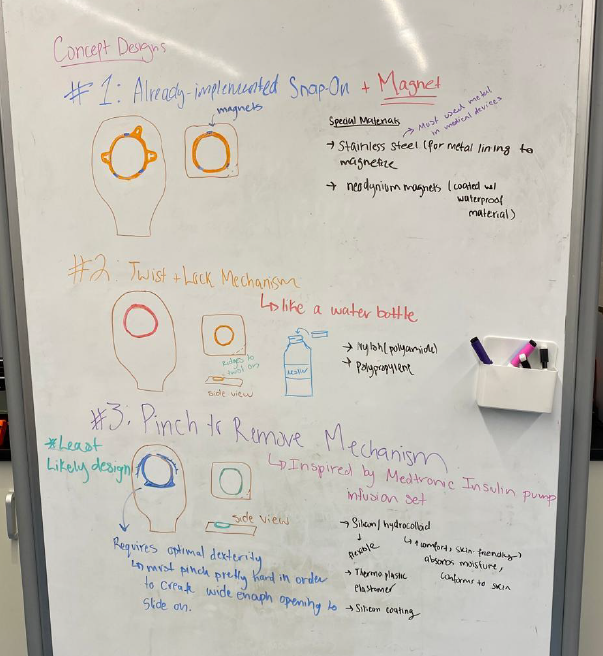 Concept Designs
#1: Already-implemented Snap-On + Magnet
magnets
Special Materials
Most used metal in medical devices
→ Stainless steel (for metal lining to
magnetize
→ neodynium magnets (coated w/
waterproof
material)
#2: Twist + Lock Mechanism
↳ like a water bottle
Ridges to
twist on
side view
water
→ Nylon (polyamide)
→ Polypropylene
#3: Pinch to Remove Mechanism
*Least
Likely design
↳ Inspired by Medtronic Insulin pump
infusion set
side view
Requires optimal dexterity
↳ must pinch pretty hard in order
to create wide enoph opening to
slide on.
→ Silicon/hydrocolloid
flexible
↳ (comfort, skin-friendly→)
absorbs moisture,
conforms to skin
→ Thermoplastic
elastomer
→ Silicon coating